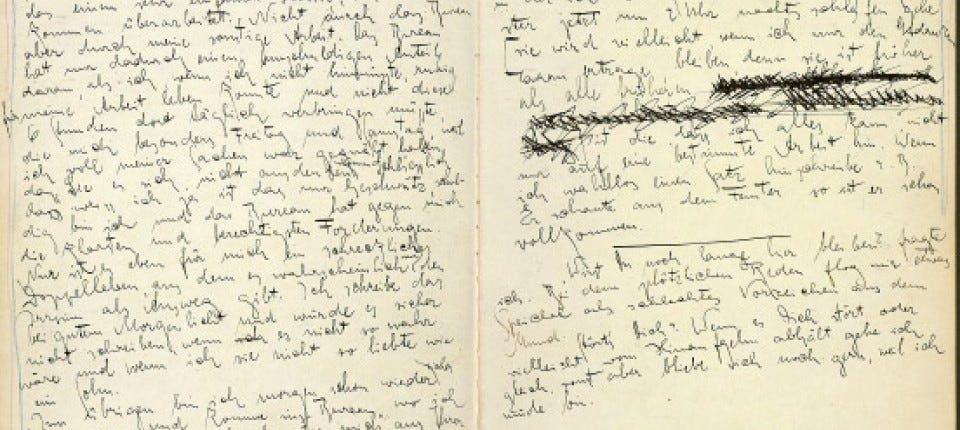 das einen sehr einfachen
kommen überarbeitet. Nicht durch das Bureau
aber durch meine sonstige Arbeit. Das Bureau
hat nur dadurch einen unschuldigen Anteil
daran, als ich, wenn ich nicht hinmüßte, ruhig
für meine Arbeit leben könnte und nicht diese
6 Stunden dort täglich verbringen müßte,
die mich besonders Freitag und Samstag, weil
ich voll meiner Sachen war gequält haben
daß Sie es sich nicht ausdenken
das weiß ich ja ist das nur Geschwätz, schul-
dig bin ich und das Bureau hat gegen mich
die klarsten und berechtigsten Forderungen.
Nur ist es eben für mich ein schreckliches
Doppelleben, aus dem es wahrscheinlich nur den
Irrsinn als Ausweg gibt. Ich schreibe das
bei gutem Morgenlicht und würde es sicher
nicht schreiben, wenn es nicht so wahr
wäre und wenn ich Sie nicht so liebte wie
ein Sohn.
Im übrigen bin ich morgen schon wieder
und komme ins Bureau, wo ich
mich aus Ihrer
der ich jetzt um 2 Uhr nachts schlafen gehe
sie wird vielleicht wenn ich nur den Gedanken
daran ertrage, bleiben, denn sie ist höher
als alle früheren
ist die, daß ich alles kann nicht
nur auf eine bestimmte Arbeit hin. Wenn
ich wahllos einen Satz hinschreibe z. B.
Er schaute aus dem Fenster so ist er schon
vollkommen.
Wirst Du noch lange hier bleiben? fragte
ich. Bei dem plötzlichen Reden flog mir etwas
Speichel als schlechtes Vorzeichen aus dem
Mund. Stört Dich? Wenn es Dich stört oder
vielleicht vom Hinaufgehn abhält gehe ich
gleich, sonst aber bliebe ich noch gern, weil ich
müde bin.